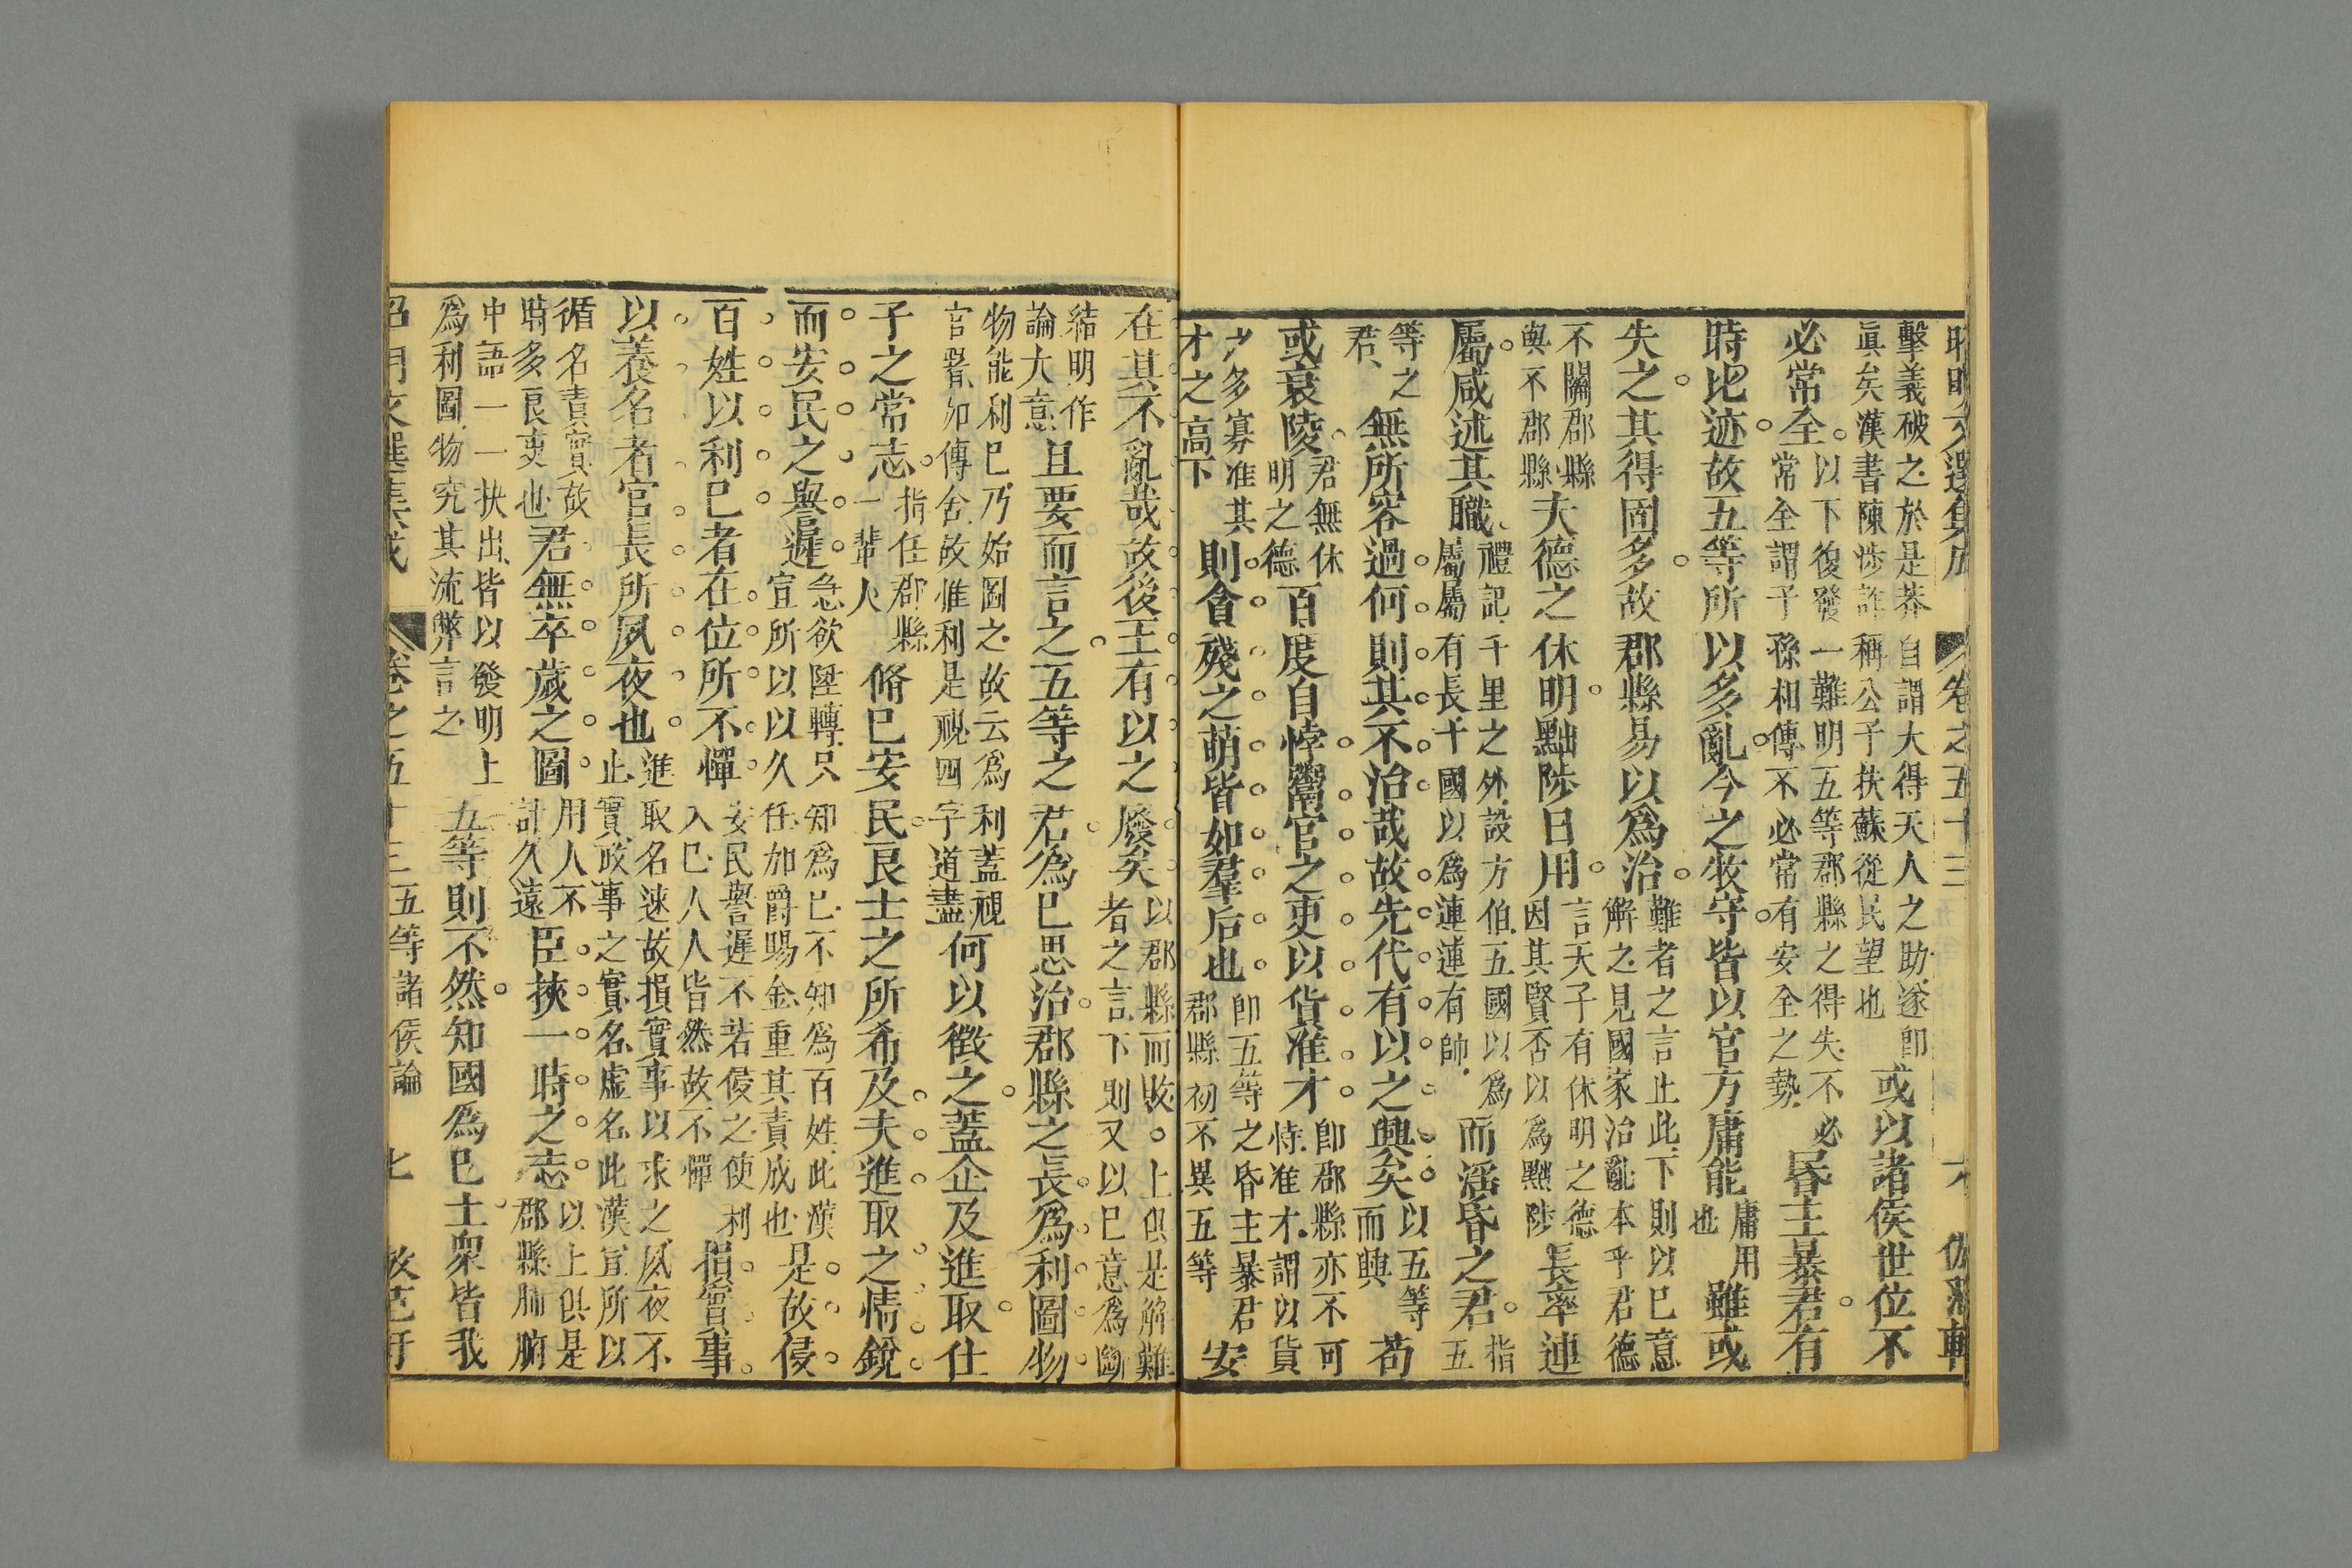 昭明文選集成 卷之五十三 六 倣范軒
擊義破之於是莽自謂大得天人之助遂卽
眞矣漢書陳涉詐稱公子扶蘇從民望也
或以諸侯世位不
必常全
以下復發一難明五等郡縣之得失不必
常全謂子孫相傳不必常有安全之勢
昏主暴君有
時比迹故五等所以多亂今之牧守皆以官方庸能
庸用
也
雖或
失之其得固多故郡縣易以爲治
難者之言止此下則以己意
解之見國家治亂本乎君德
不關郡縣
與不郡縣
夫德之休明黜陟日用
言天子有休明之德
因其賢否以爲黜陟
長率連
屬咸述其職
禮記千里之外設方伯五國以爲
屬屬有長十國以爲連連有帥
而淫昏之君
指
五
等之
君
無所容過何則其不治哉故先代有以之興矣
以五等
而興
苟
或衰陵
君無休
明之德
百度自悖鬻官之吏以貨准才
卽郡縣亦不可
恃准才謂以貨
多寡准其
才之高下
則貪殘之萌皆如羣后也
卽五等之昏主暴君
郡縣初不異五等
安
在其不亂哉故後王有以之廢矣
以郡縣而敗。上俱是解難
者之言下則又以己意爲斷
結明作
論大意
且要而言之五等之君爲己思治郡縣之長爲利圖物
物能利己乃始圖之故云爲利蓋視
官署如傳舍故惟利是視四字道盡
何以徵之蓋企及進取仕
子之常志
指任郡縣
一輩人
脩己安民良士之所希及夫進取之情銳
而安民之譽遲
急欲陞轉只知爲己不知爲百姓此漢
宣所以以久任加爵賜金重其責成也
是故侵
百姓以利己者在位所不憚
安民譽遲不若侵之使利
入己人人皆然故不憚
損實事
以養名者官長所夙夜也
進取名速故損實事以求之夙夜不
止實政事之實名虛名此漢宣所以
循名責實故
時多良吏也
君無卒歲之圖
用人不
計久遠
臣挾一時之志
以上俱是
郡縣肺腑
中語一一抉出皆以發明上
爲利圖物究其流弊言之
五等則不然知國爲己土衆皆我
昭明文選集成 卷之五十三 五等諸侯論 七 倣范軒